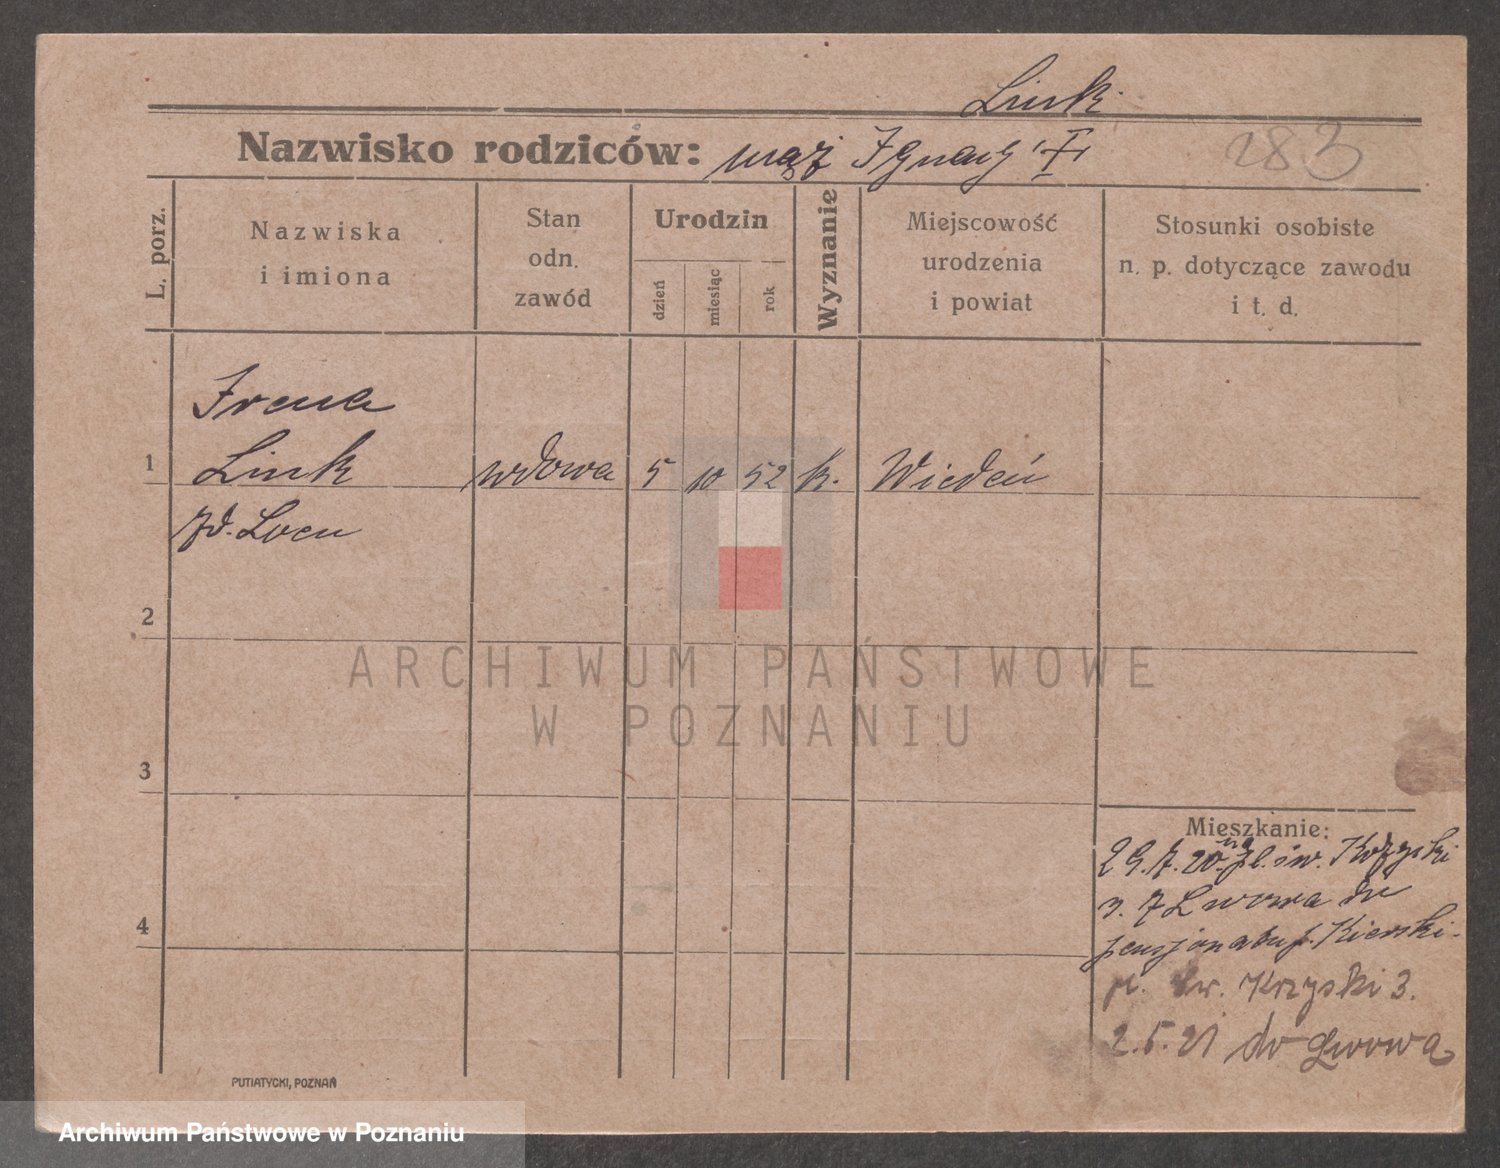 Link
Nazwisko rodziców: mąż Ignacy "I"
283
L. porz.
Nazwiska
i imiona
Stan
odn.
zawód
Urodzin
dzień
miesiąc
rok
Wyznanie
Miejscowość
urodzenia
i powiat
Stosunki osobiste
n. p. dotyczące zawodu
i t. d.
Irena
1 Link wdowa 5 10 52 k. Wiedeń
2
3
4
ARCHIWUM PAŃSTWOWE
W POZNANIU
Mieszkanie:
na
pl. św. Krzyski
3. Z Lwowa do
pensjonatu p. Kierski
pl. św. Krzyski 3.
2.5.21 do Lwowa
PUTIATYCKI, POZNAŃ
Archiwum Państwowe w Poznaniu